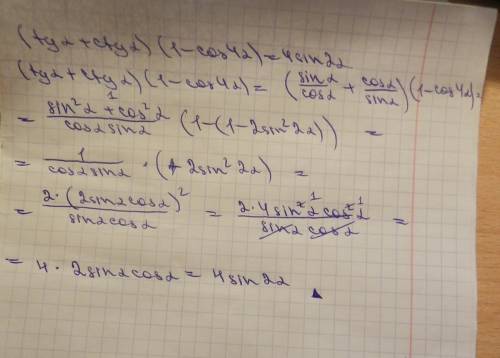 (tgα + ctgα) (1 - cos4α) = 4sin2α
(tgα + ctgα) (1 - cos4α) = (sinα/cosα + cosα/sinα) (1 - cos4α) =
1
= (sin²α + cos²α)/(cosα sinα) (1 - (1 - 2sin²2α)) =
= 1/(cosα sinα) · (2sin²2α) =
= 2·(2sinαcosα)²/(sinαcosα) = 2·4sin²α cos²α/(sinα cosα) =
= 4 · 2sinαcosα = 4sin2α